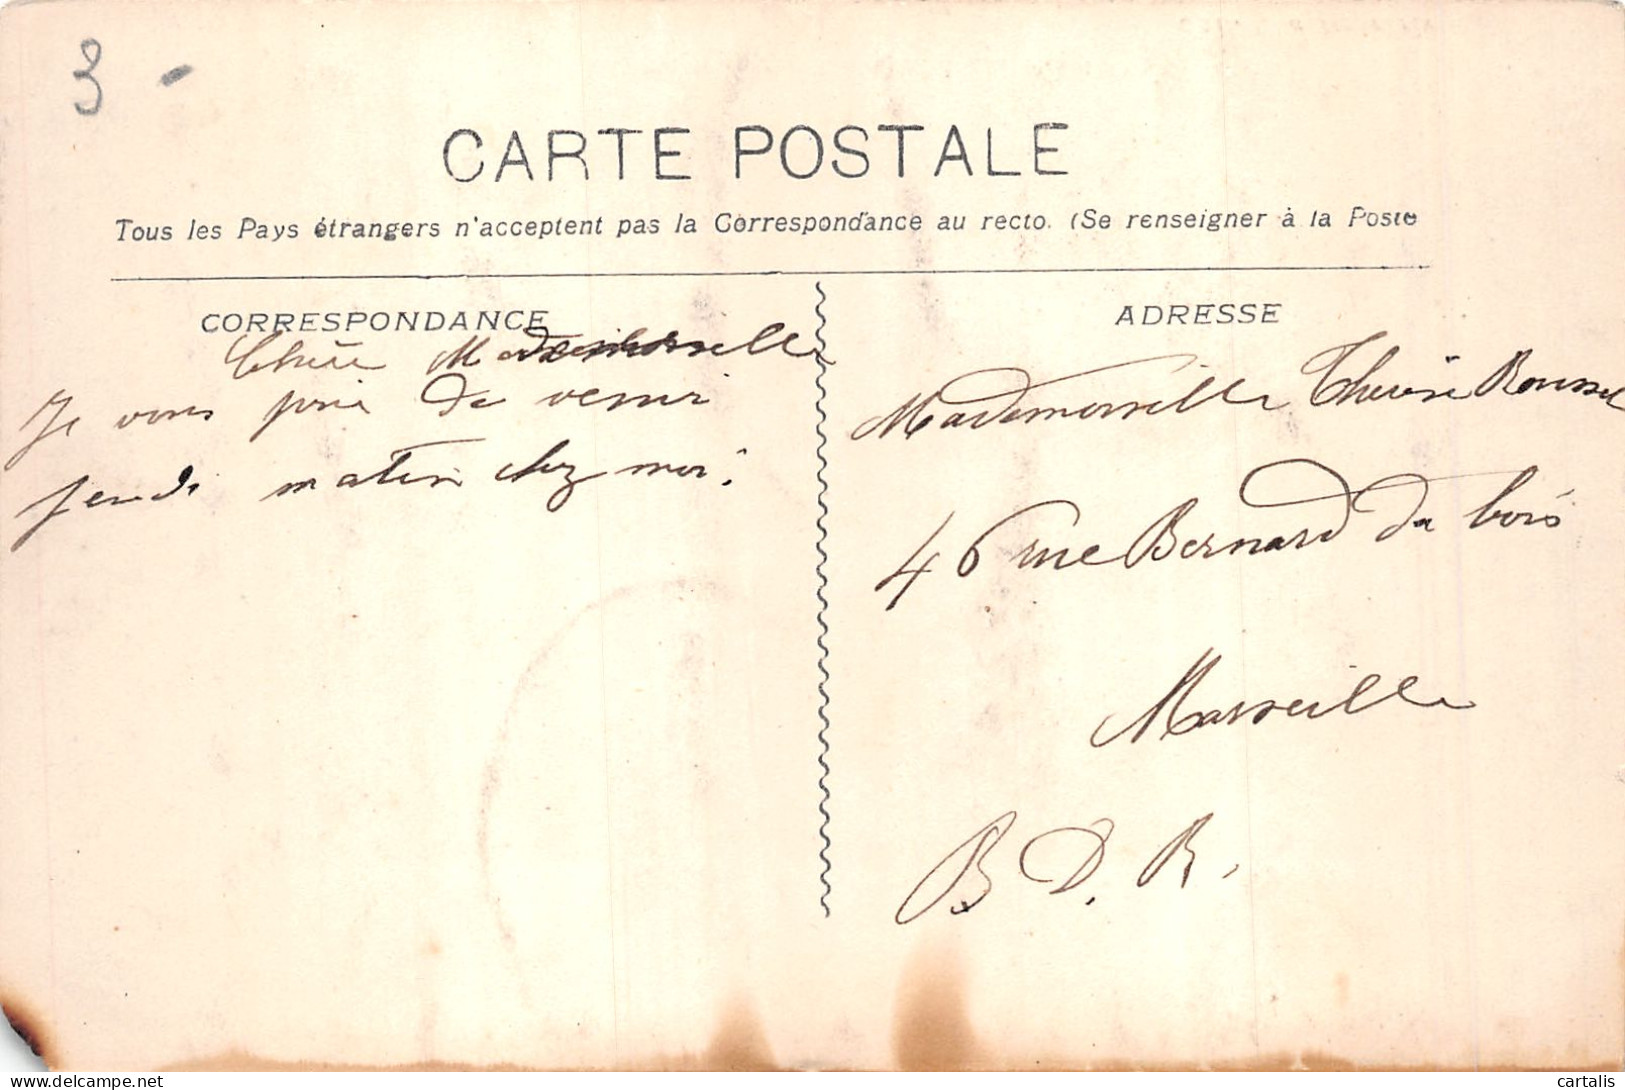 3 -
CARTE POSTALE
Tous les Pays étrangers n'acceptent pas la Correspondance au recto. (Se renseigner à la Poste
CORRESPONDANCE
Chère Mademoiselle
Je vous prie de venir
jeudi matin chez moi.
ADRESSE
Mademoiselle Thérèse Roussel
46 rue Bernard du bois
Marseille
B. D. R.
delcampe.net
cartalis